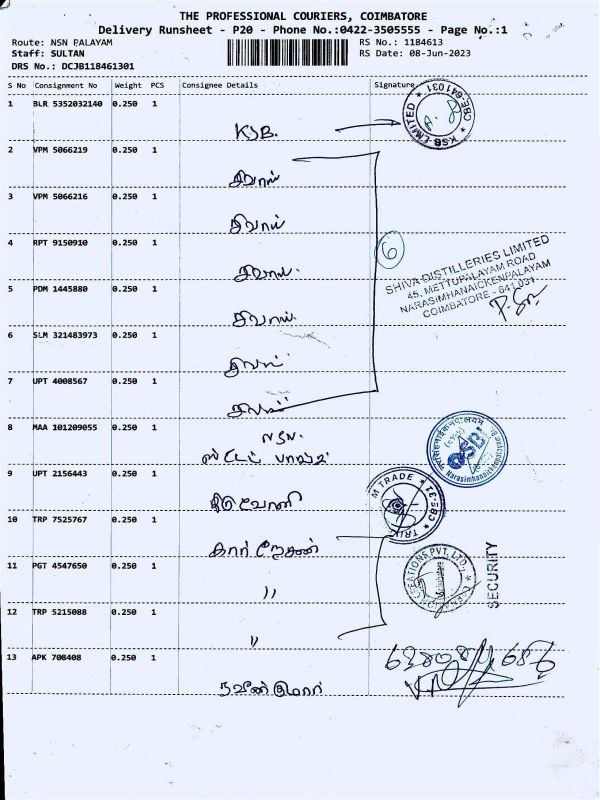 THE PROFESSIONAL COURIERS, COIMBATORE
Delivery Runsheet - P20 - Phone No.:0422-3505555 - Page No.:1
Route: NSN PALAYAM
RS No.: 1184613
Staff: SULTAN
RS Date: 08-Jun-2023
DRS No.: DCJB118461301
S No Consignment No Weight PCS Consignee Details Signature
1 BLR 5352032140 0.250 1
KSB.
KSB LIMITED * CBE-641031 *
2 VPM 5066219 0.250 1
சிவாஸ்
3 VPM 5066216 0.250 1
சிவாஸ்
4 RPT 9150910 0.250 1
சிவாஸ்
6
SHIVA DISTILLERIES LIMITED
45, METTUPALAYAM ROAD
NARASIMHANAICKENPALAYAM
COIMBATORE - 641 031.
5 PDM 1445880 0.250 1
சிவாஸ்
6 SLM 321483973 0.250 1
சிவாஸ்
7 UPT 4008567 0.250 1
சிவாஸ்
8 MAA 101209055 0.250 1
NSN.
ஸ்டேட் பாங்க்
9 UPT 2156443 0.250 1
திருவோணி
TRADE * CBE-31 *
10 TRP 7525767 0.250 1
CREATIONS PVT. LTD.
SECURITY
11 PGT 4547650 0.250 1
"
12 TRP 5215088 0.250 1
"
13 APK 708408 0.250 1
நவீன்குமார்